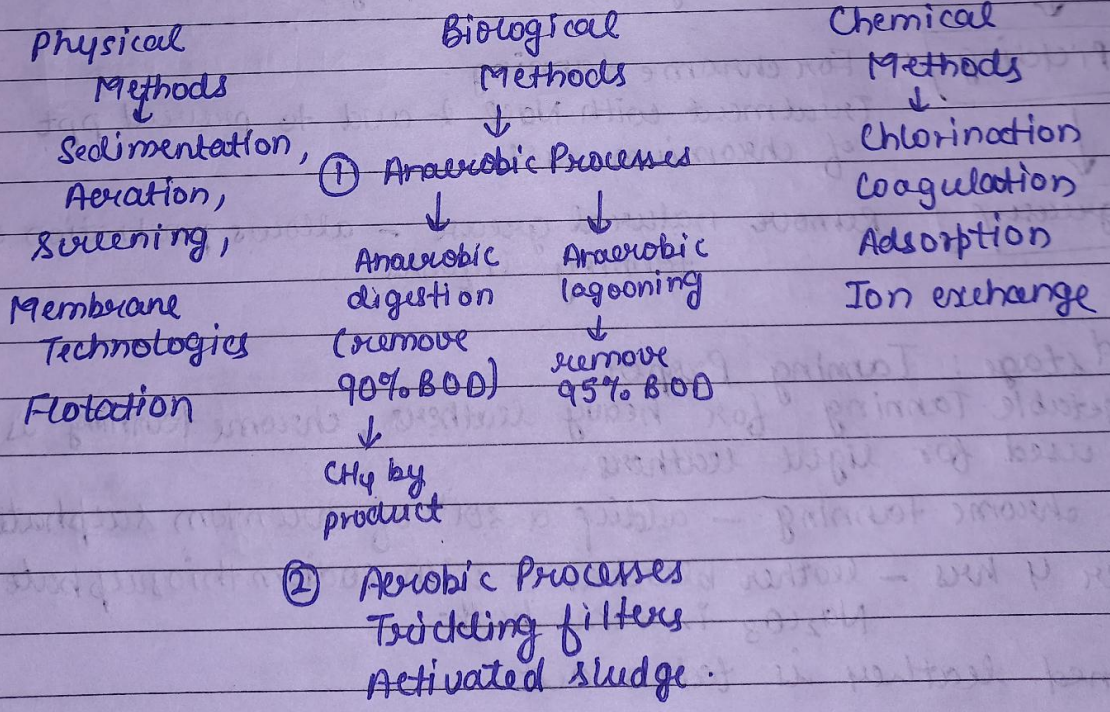 Physical
Methods
↓
Sedimentation,
Aeration,
Screening,
Membrane
Technologies
Flotation
Biological
Methods
↓
① Anaerobic Processes
↓ ↓
Anaerobic
digestion
(remove
90% BOD)
↓
CH4 by
product
Anaerobic
lagooning
↓
remove
95% BOD
② Aerobic Processes
Trickling filters
Activated sludge.
Chemical
Methods
↓
Chlorination
Coagulation
Adsorption
Ion exchange